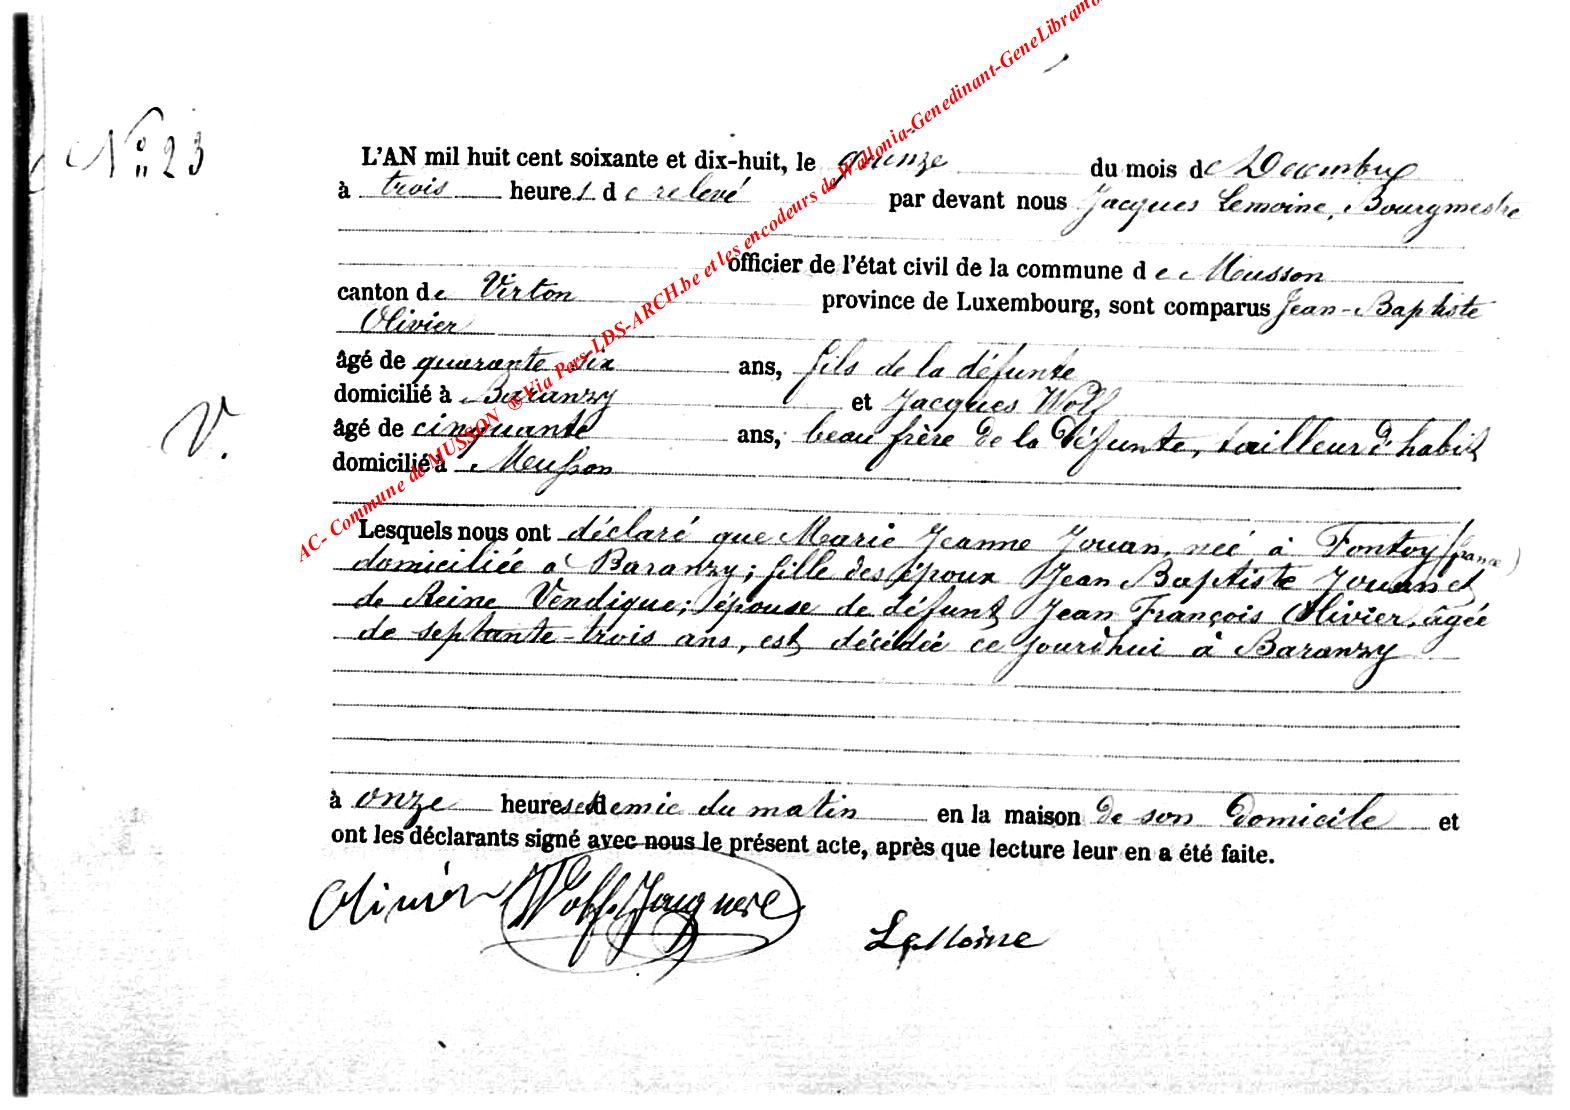 N° 23
L'AN mil huit cent soixante et dix-huit, le quinze du mois de Decembre
à trois heures de relevé par devant nous Jacques Lemoine, Bourgmestre
officier de l'état civil de la commune de Musson
canton de Virton province de Luxembourg, sont comparus Jean-Baptiste
Olivier
âgé de quarante six ans, fils de la défunte
domicilié à Baranzy et Jacques Wolf
âgé de cinquante ans, beau frère de la défunte, tailleur d'habit
domicilié à Musson
Lesquels nous ont déclaré que Marie Jeanne Jouan, née à Fontoy (france)
domiciliée à Baranzy; fille des époux Jean Baptiste Jouan et
de Reine Vendique; épouse de défunt Jean François Olivier, âgée
de septante-trois ans, est décédée ce jourd'hui à Baranzy
à onze heures et demie du matin en la maison de son domicile et
ont les déclarants signé avec nous le présent acte, après que lecture leur en a été faite.
Olivier Wolf Jacques
Lemoine
V.
AC- Commune de MUSSON ® Via Pers-LDS-ARCH.be et les encodeurs de Wallonia-Genedinant-GeneLibramo